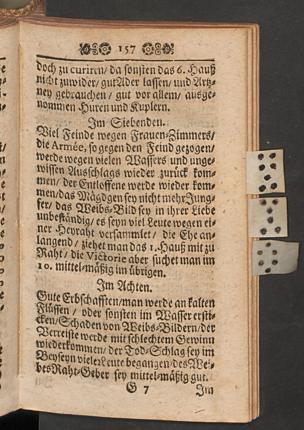 157
doch zu curiren / da sonsten das 6. Hauß
nicht zuwider / gut Ader lassen / und Artz-
ney gebrauchen / gut vor allem / ausge-
nommen Huren und Kuplern.
Im Siebenden.
Viel Feinde wegen Frauen-Zimmers /
die Armée, so gegen den Feind gezogen /
werde wegen vielen Wassers und unge-
wissen Ausschlags wieder zurück kom-
men / der Entloffene werde wieder kom-
men / das Mägdgen sey nicht mehr Jung-
fer / das Weibs-Bild sey in ihrer Liebe
unbeständig / es seyn viel Leute wegen ei-
ner Heyraht versammlet / die Ehe an-
langend / ziehet man das 1. Hauß mit zu
Raht / die Victorie aber suchet man im
10. mittel-mäßig im übrigen.
Im Achten.
Gute Erbschafften / man werde an kalten
Flüssen / oder sonsten im Wasser ersti-
cken / Schaden von Weibs-Bildern / der
Verreiste werde mit schlechtem Gewinn
wiederkommen / der Tod-Schlag sey im
Beyseyn vieler Leute begangen / des Wei-
bes Raht-Geber sey mittel-mäßig gut.
G 7 Im